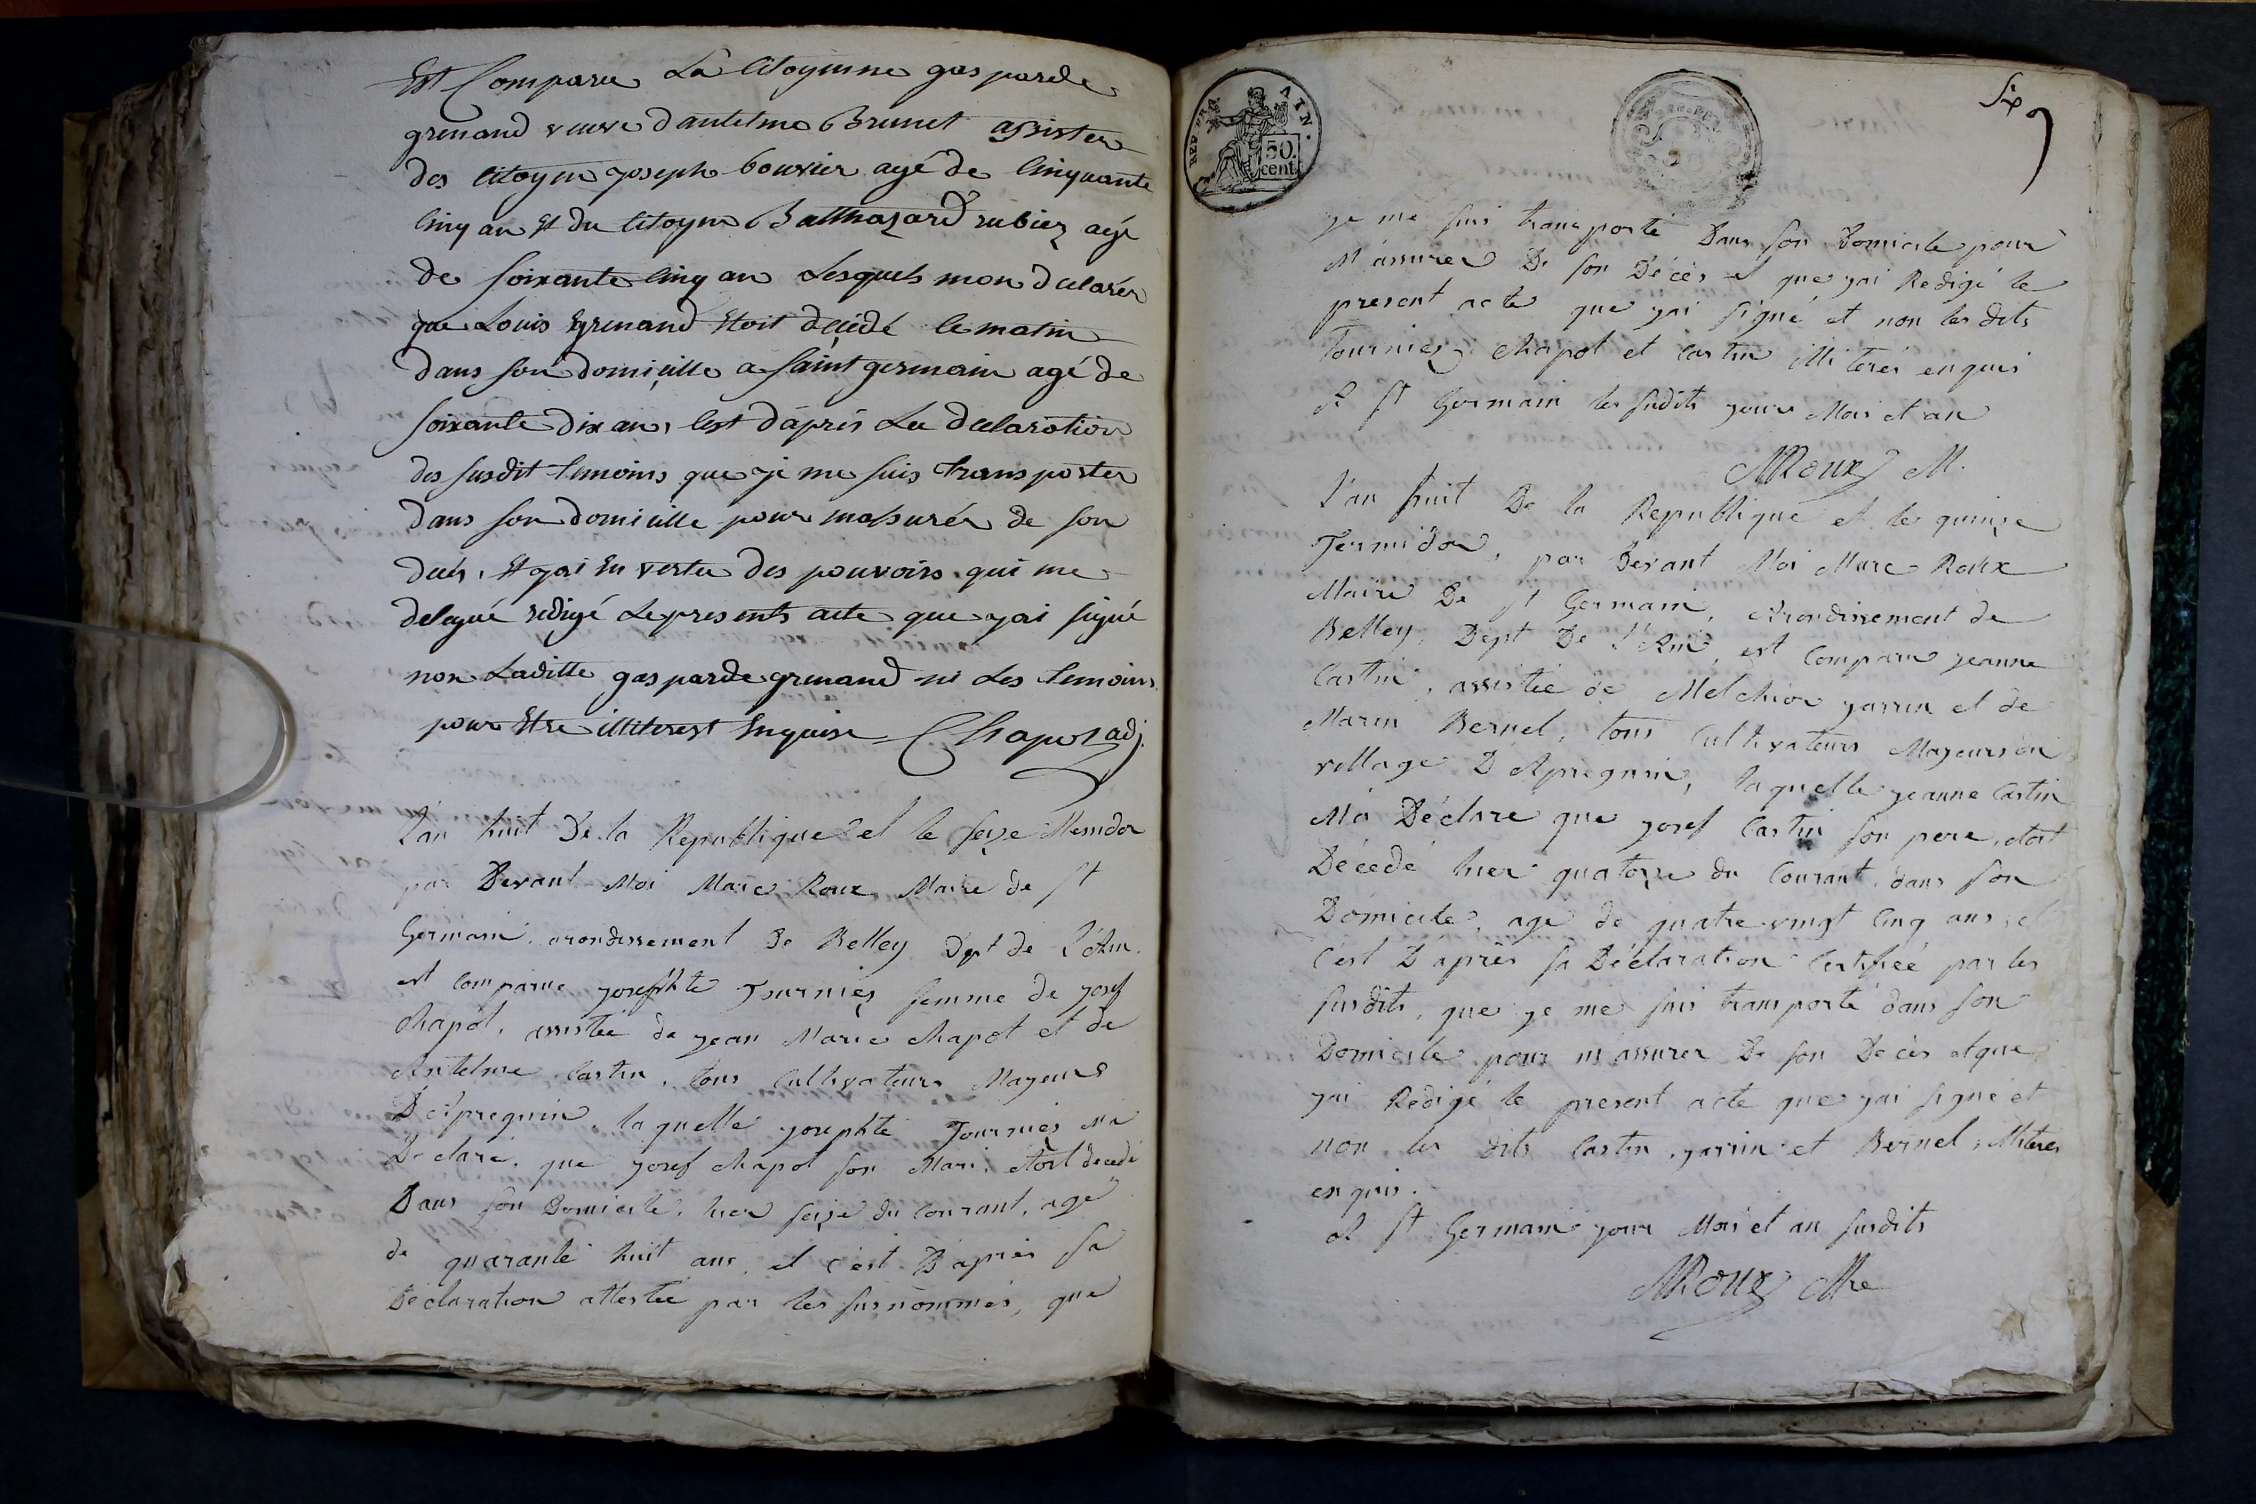 Est Comparu La Citoyenne gasparde
grenand veuve dantelme Brunet assister
des citoyen joseph bouvier agé de Cinquante
Cinq an Et du Citoyen Balthazard rubier agé
de soixante Cinq an Lesquels mon declarér
que Louis grenand Etoit decédé le matin
dans son domicille a saint germain agé de
soixante dix ans, Cest dapris La declaration
des susdit temoins que je me suis transporter
dans son domicille pour massurér de son
decés, Et jai En vertu des pouvoirs qui me
delegué redigé Le presents acte que jai signé
non Laditte gasparde grenand ni Les temoins
pour Etre illiterest Enquise Chapot adj.
l'an huit De la Republique et le seize Messidor
par Devant Moi Marc Roux Maire de St
Germain arondissement De Belley Dépt de L'Ain
est Comparue josephte Fournier femme de josef
Chapot, assistée de jean Marie Chapot et de
Antelme Castin, tous Cultivateurs Mageurs
D'Apregnin, laquelle josephte Fournier M'a
Declaré, que josef Chapot son Mari, etoit decedé
Dans son Domicile, hier seize du Courant, agé
de quarante huit ans, et c'est D'après sa
Déclaration attestée par les susnommés, que
REP. FRA. ATN.
50. cent
Six
je me suis transporté Dans son Domicile pour
M'assurer De son Décès et que jai Redigé le
present acte que jai signé et non les dits
Fournier, Chapot et Castin illiterés enquis
A St Germain les susdits jour Mois et an
MRoux M.
l'an huit De la Republique et le quinze
Termidor, par Devant Moi Marc Roux
Maire De St Germain, Arondissement de
Belley, Dépt De L'Ain, est Comparue jeanne
Castin, assistée de Melchior jarrin et de
Marin Bernel, tous Cultivateurs Mageurs du
village D'Apregnin, laquelle jeanne Castin
M'a Déclaré que josef Castin son pere, etoit
Décedé hier quatorze du Courant, dans son
Domicile, agé de quatre vingt Cinq ans, et
C'est D'après sa Déclaration Certifiée par les
susdits, que je me suis transporté dans son
Domicile pour m'assurer De son Decès et que
jai Redigé le present acte que jai signé et
non les dits Castin, jarrin et Bernel illiteres
enquis.
A St Germain jour Mois et an susdits
MRoux Mre